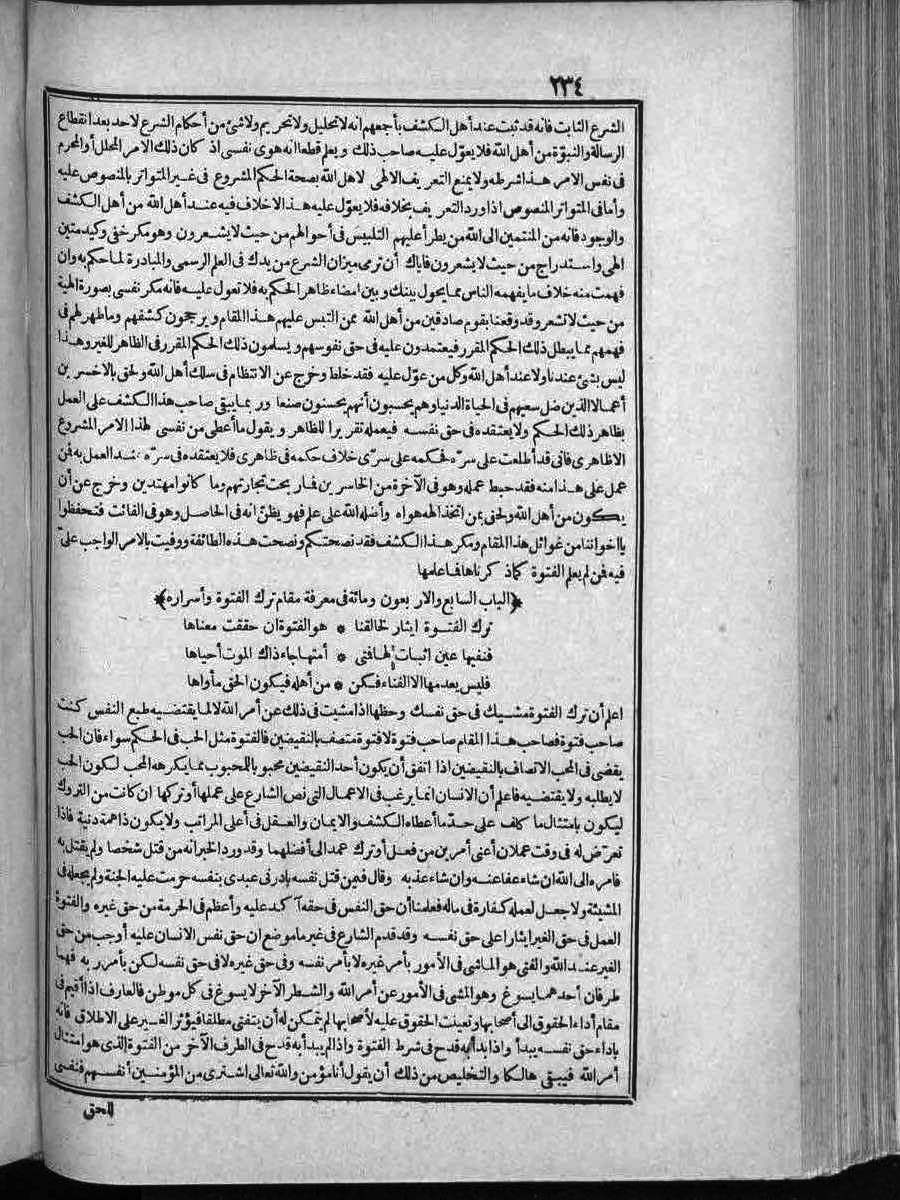 ٢٣٤
الشرع الثابت فانه قد ثبت عند أهل الكشف بأجمعهم انه لا تحليل ولا تحريم ولا شئ من أحكام الشرع لاحد بعد انقطاع
الرسالة والنبوّة من أهل الله فلا يعوّل عليه صاحب ذلك ويعلم قطعا انه هوى نفسى اذ كان ذلك الامر المحلل أو المحرم
فى نفس الامر هذا شرطه ولا يمنع التعريف الالهى لاهل الله بصحة الحكم المشروع فى غير المتواتر بالمنصوص عليه
وأما فى المتواتر المنصوص اذا ورد التعريف بخلافه فلا يعوّل عليه هذا لا خلاف فيه عند أهل الله من أهل الكشف
والوجود فانه من المنتمين الى الله من يطرأ عليهم التلبيس فى أحوالهم من حيث لا يشعرون وهو مكر خفى وكيد متين
الهى واستدراج من حيث لا يشعرون فاياك أن ترمى ميزان الشرع من يدك فى العلم الرسمى والمبادرة لما حكم به وان
فهمت منه خلاف ما يفهمه الناس مما يحول بينك وبين امضاء ظاهر الحكم به فلا تعول عليه فانه مكر نفسى بصورة الهية
من حيث لا تشعر وقد وقعنا بقوم صادقين من أهل الله ممن التبس عليهم هذا المقام ويرجحون كشفهم وما ظهر لهم فى
فهمهم مما يبطل ذلك الحكم المقرر فيعتمدون عليه فى حق نفوسهم ويسلمون ذلك الحكم المقرر فى الظاهر للغير وهذا
ليس بشئ عندنا ولا عند أهل الله وكل من عوّل عليه فقد خلط وخرج عن الانتظام فى سلك أهل الله ولحق بالاخسرين
أعمالا الذين ضل سعيهم فى الحياة الدنيا وهم يحسبون أنهم يحسنون صنعا وربما يبقى صاحب هذا الكشف على العمل
بظاهر ذلك الحكم ولا يعتقده فى حق نفسه فيعمله تقريرا للظاهر ويقول ما أعطى من نفسى لهذا الامر المشروع
الا ظاهرى فانى قد أطلعت على سرّه فحكمه على سرّى خلاف حكمه فى ظاهرى فلا يعتقده فى سرّه عند العمل به فمن
عمل على هذا منه فقد حبط عمله وهو فى الآخرة من الخاسرين فما ربحت تجارتهم وما كانوا مهتدين وخرج عن أن
يكون من أهل الله ولحق بمن اتخذ الهه هواه وأضله الله على علم فهو يظنّ انه فى الحاصل وهو فى الفائت فتحفظوا
يا اخواننا من غوائل هذا المقام ومكر هذا الكشف فقد نصحتكم ونصحت هذه الطائفة ووفيت بالامر الواجب علىّ
فيه فمن لم يعلم الفتوة كما ذكرناها فما علمها
﴿الباب السابع والاربعون ومائة فى معرفة مقام ترك الفتوة وأسراره﴾
ترك الفتوة ايثار لخالقنا * هو الفتوة ان حققت معناها
فنفيها عين اثبات لها فتى * أمتها جاء ذاك الموت أحياها
فليس يعدمها الا الفناء فكن * من أهله فيكون الحق مأواها
اعلم أن ترك الفتوة مشيك فى حق نفسك وحظها اذا مشيت فى ذلك عن أمر الله لا لما يقتضيه طبع النفس كنت
صاحب فتوة فصاحب هذا المقام صاحب فتوة لا فتوة متصف بالنقيضين فالفتوة مثل الحب فى الحكم سواء فان الحب
يقضى فى المحب الاتصاف بالنقيضين اذا اتفق أن يكون أحد النقيضين محبوبا للمحبوب مما يكرهه المحب لكون الحب
لا يطلبه ولا يقتضيه فاعلم أن الانسان انما يرغب فى الاعمال التى نص الشارع على عملها أو تركها ان كانت من التروك
ليكون بامتثال ما كلف على حدّ ما أعطاه الكشف والايمان والعقل فى أعلى المراتب ولا يكون ذا همة دنية فاذا
تعرّض له فى وقت عملان أعنى أمرين من فعل أو ترك عمد الى أفضلهما وقد ورد الخبر انه من قتل شخصا ولم يقتل به
فامره الى الله ان شاء عفا عنه وان شاء عذبه وقال فيمن قتل نفسه بادرنى عبدى بنفسه حرمت عليه الجنة ولم يجعله فى
المشيئة ولا جعل لعمله كفارة فى ماله فعلمنا أن حق النفس فى حقه آكد عليه وأعظم فى الحرمة من حق غيره والفتوة
العمل فى حق الغير ايثارا على حق نفسه وقد قدم الشارع فى غير ما موضع ان حق نفس الانسان عليه أوجب من حق
الغير عند الله والفتى هو الماشى فى الأمور بأمر غيره لا بأمر نفسه وفى حق غيره لا فى حق نفسه لكن بأمر ربه فهما
طرفان أحدهما يسوغ وهو المشى فى الأمور عن أمر الله والشطر الآخر لا يسوغ فى كل موطن فالعارف اذا أقيم فى
مقام أداء الحقوق الى أصحابها وتعينت الحقوق عليه لأصحابها لم يتمكن له أن يتفتى مطلقا فيؤثر الغير على الاطلاق فانه
باداء حق نفسه يبدأ واذا بدأ به قدح فى شرط الفتوة واذا لم يبدأ به قدح فى الطرف الآخر من الفتوة الذى هو امتثال
أمر الله فيبقى هالكا والتخليص من ذلك أن يقول أنا مؤمن والله تعالى اشترى من المؤمنين أنفسهم فنفسى
للحق